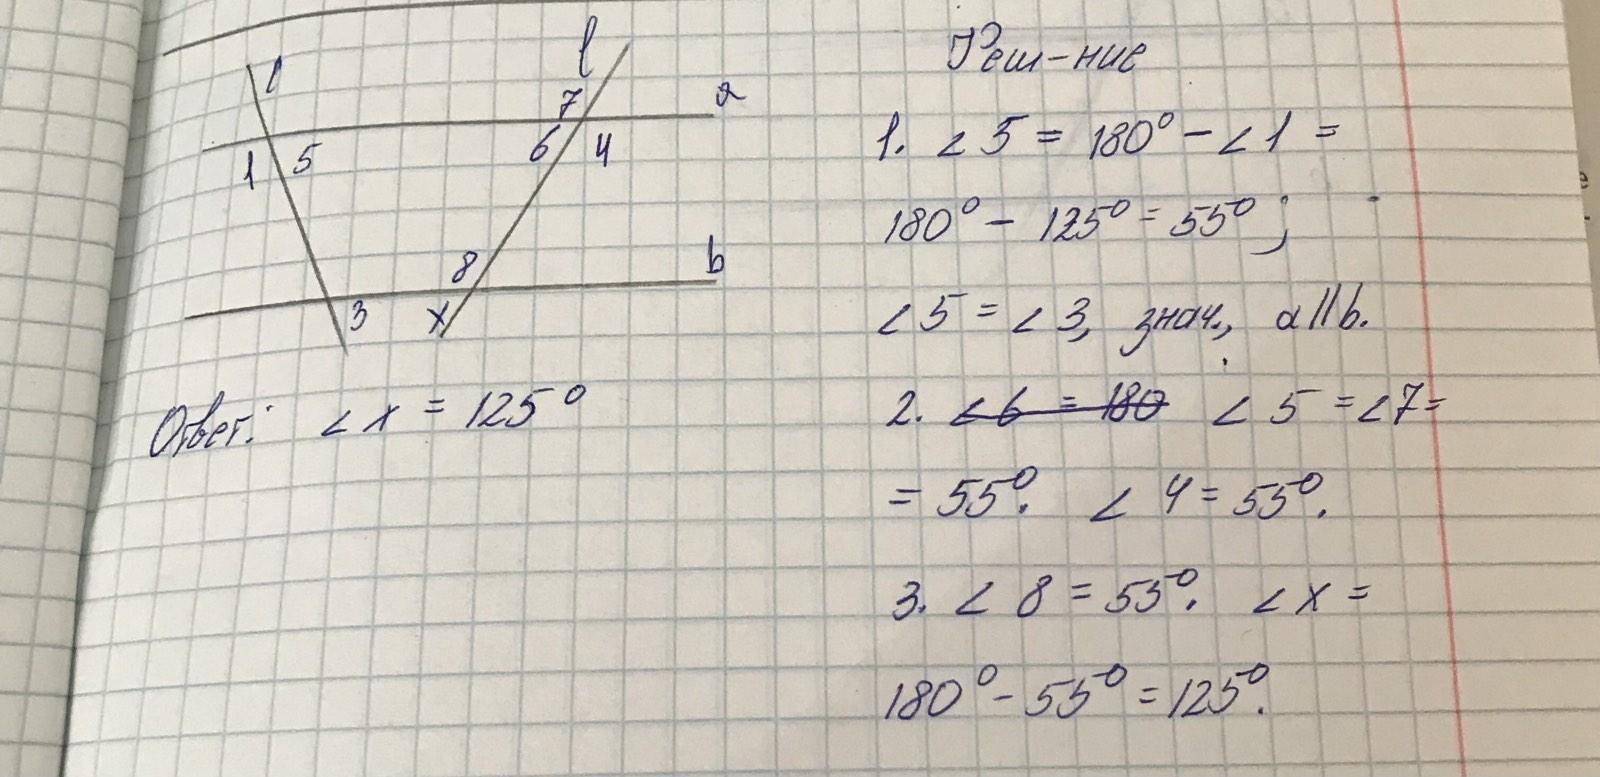 l
l
7
a
6
4
1
5
8
b
3
x
Ответ: ∠x = 125°
Реш-ние
1. ∠5 = 180° - ∠1 =
180° - 125° = 55°;
∠5 = ∠3, знач., a||b.
2. ∠6 = 180 ∠5 = ∠7 =
= 55°. ∠4 = 55°.
3. ∠8 = 55°. ∠x =
180° - 55° = 125°.